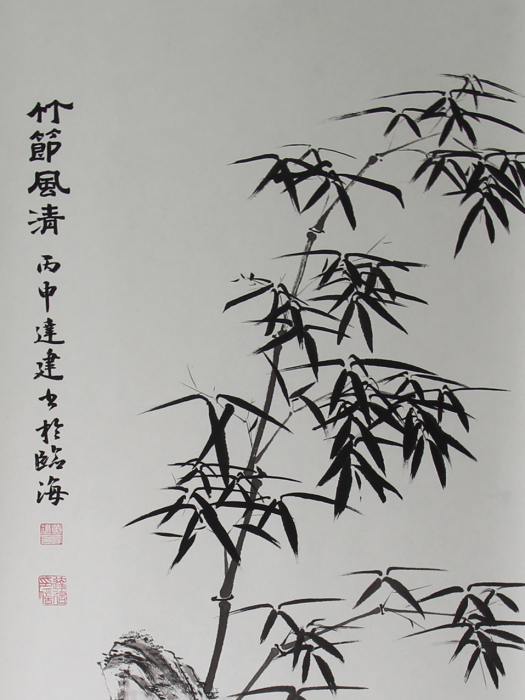 竹節風清
丙申達建書於臨海